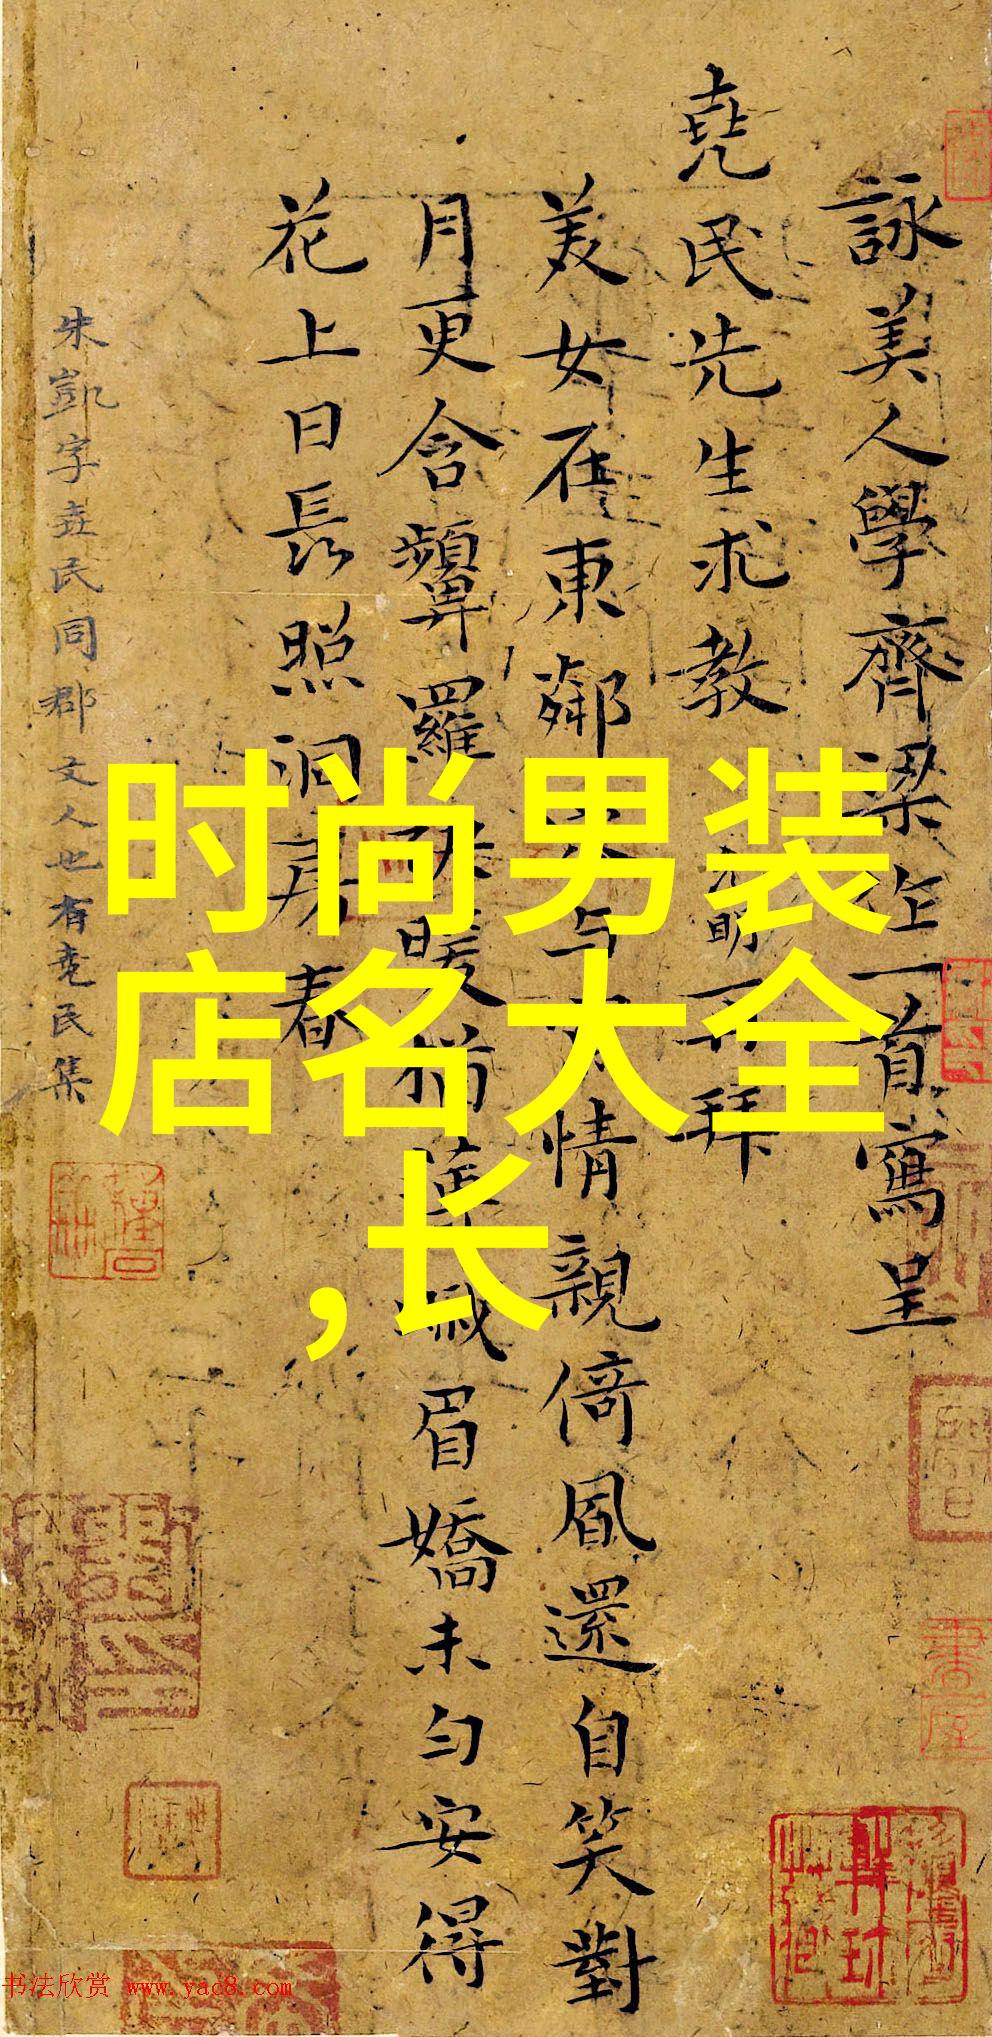 詠美人學齊梁作一首寫呈
堯民先生求教 再拜
美女在東鄰 與 情親倚風還自笑對
月更含顰羅 暖 眉嬌未勻安得
花上日長照洞房春
朱凱字堯民同郡文人也有堯民集
时尚男装
店名大全
,长
书法欣赏 www.yac8.com